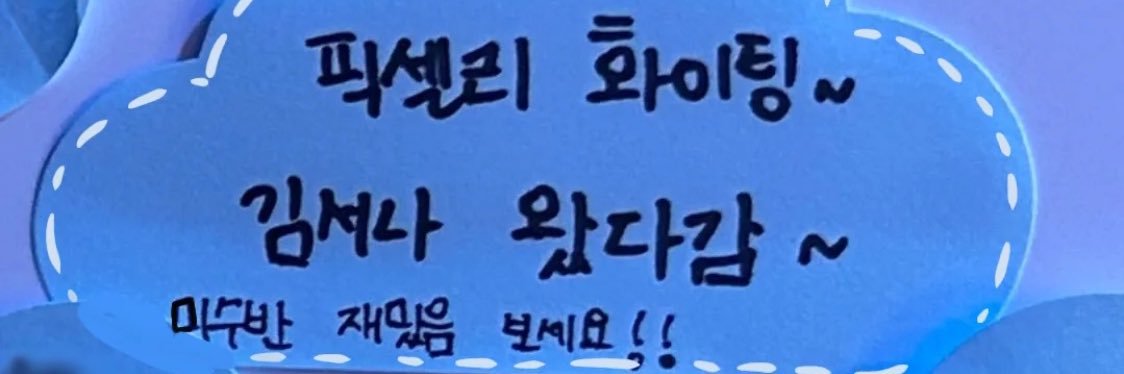 픽셀리 화이팅~
김셔나 왔다감~
미수반 재밌음 보세요!!